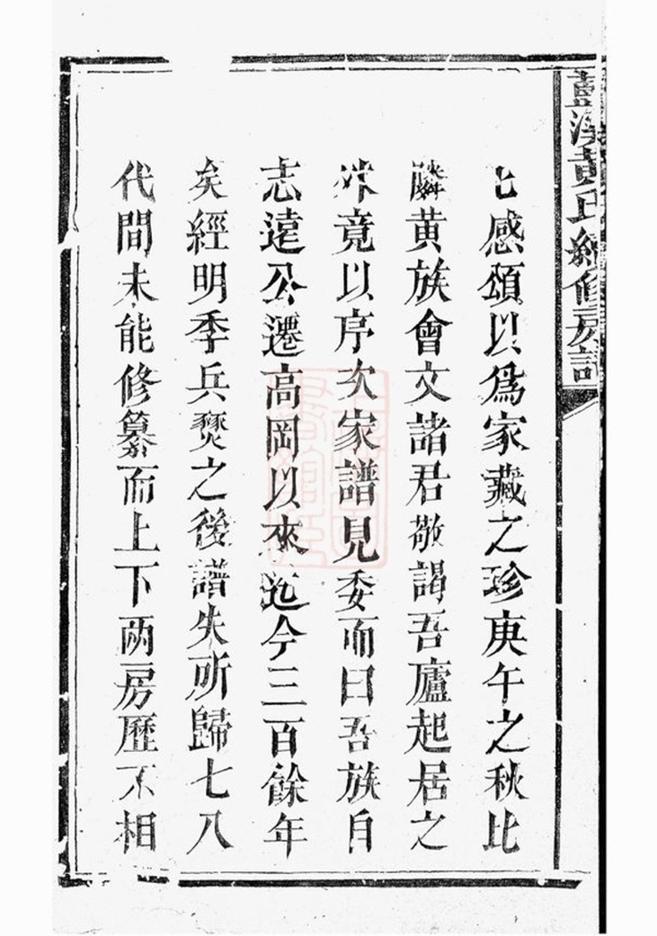 彭溪黃氏續修房譜
七感頌以爲家藏之珍庚午之秋比
鄰黃族會文諸君敬謁吾廬起居之
餘竟以序次家譜見委而曰吾族自
志遠公遷高岡以來迄今三百餘年
矣經明季兵燹之後譜失所歸七八
代間未能修纂而上下兩房歷不相